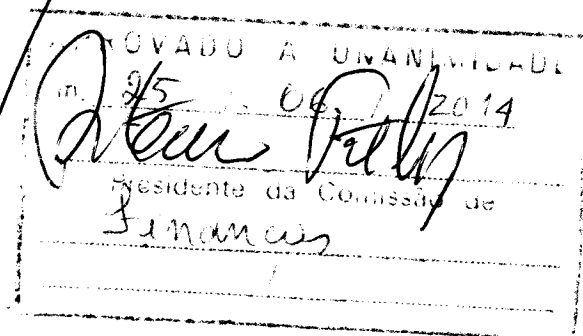 OVADO A UNANIMIDADE
m, 25 / 06 / 2014
Presidente da Comissão de
Finanças